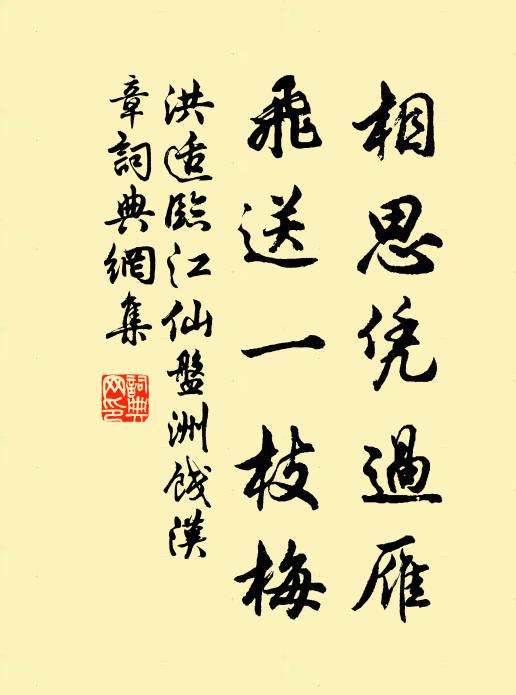 相思凭過雁
飛送一枝梅
洪适臨江仙盤洲餞漢
章詞典網集
詞典网印